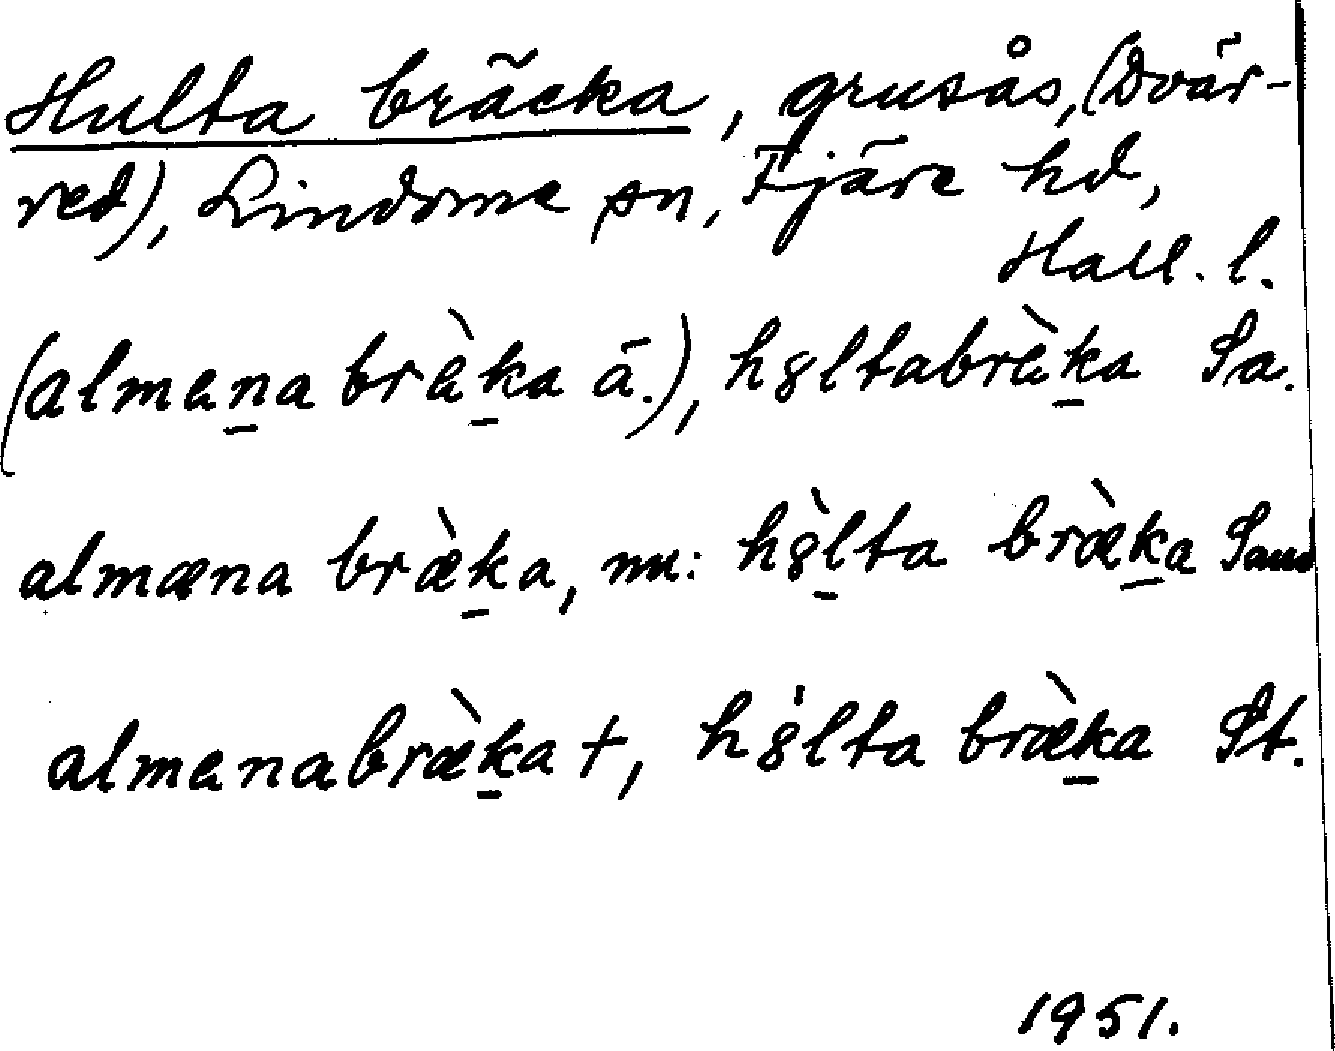 Hulta bräcka, grusås, (Dvär-
red), Lindome sn, Fjäre hd,
Hall. l.
(almena bræ̀ka ä.), hȣltabræ̀ka Sa.
almæna bræ̀ka, nu: hȣ̀lta bræ̀ka Sand
almenabræ̀ka †, hȣ̀lta bræ̀ka St.
1951.